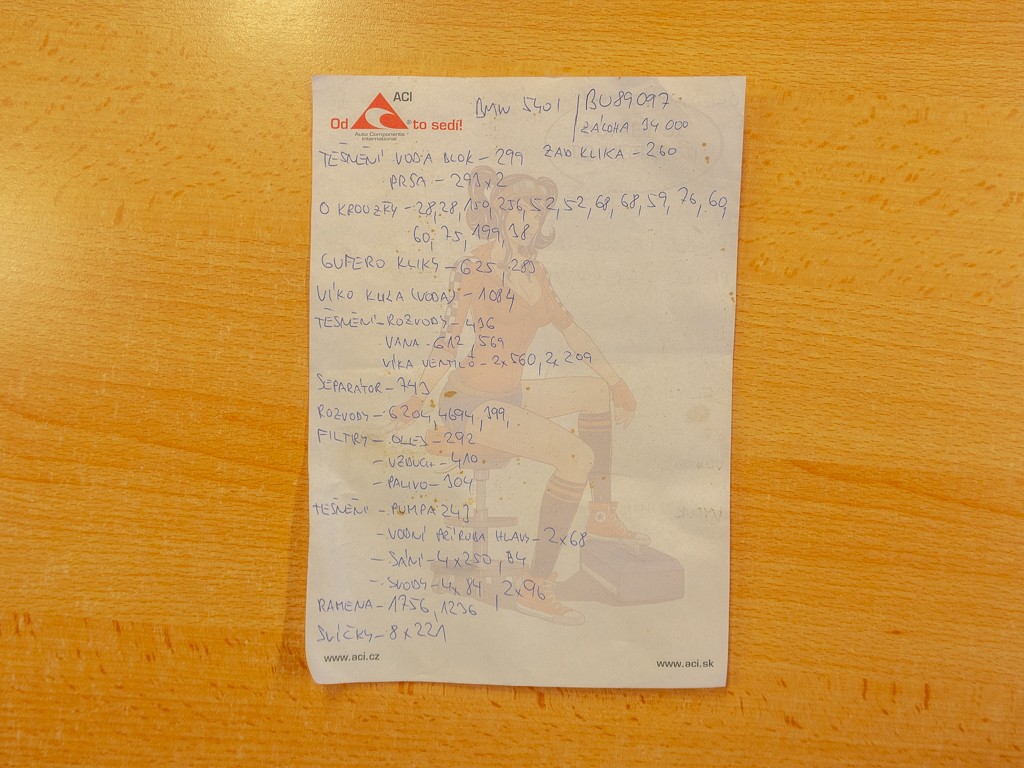 ACI
Od to sedí!
Auto Components International
BMW 540i | BU89097
ZÁLOHA 14 000
TĚSNĚNÍ VODA BLOK - 299 ZAD KLIKA - 260
PRSA - 291x2
O KROUŽKY - 28, 28, 150, 256, 52, 52, 68, 68, 59, 76, 60,
60, 75, 199, 38
GUFERO KLIKY - 625, 283
VÍKO KULA (VODA) - 1084
TĚSNĚNÍ - ROZVODY - 436
VANA - 612, 569
VÍKA VENTILŮ - 2x560, 2x209
SEPARÁTOR - 743
ROZVODY - 6204, 4694, 399,
FILTRY - OLEJ - 292
- VZDUCH - 410
- PALIVO - 304
TĚSNĚNÍ - PUMPA 243
- VODNÍ PŘÍRUBA HLAVY - 2x68
- SÁNÍ - 4x250, 84
- SVODY - 4x84, 2x96
RAMENA - 1756, 1236
SVÍČKY - 8x221
www.aci.cz
www.aci.sk